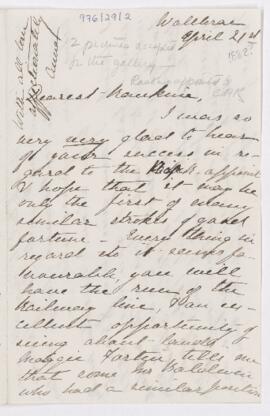 976/29/2
Wallbrae
April 21st
1882?
2 pictures accepted
for the gallery —
Railway appoints
CPR
With all love
affectionately
Annot
Dearest Hawkine,
I was so
very very glad to hear
of your success in re-
gard to the R.R. appoint
I hope that it may be
only the first of many
similar strokes of good
fortune — Everything in
regard to it seems fa-
vourable, you will
have the run of the
Railway line, & an ex-
cellent opportunity of
seeing about lands
Maggie tells me
that some Mr Baldwin
who had a similar position